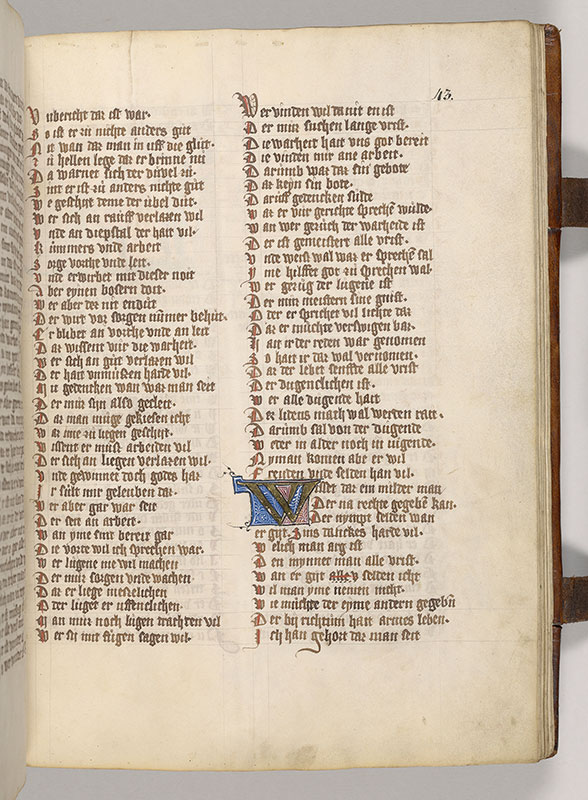 43.
V ubericht daz ist war.
S o ist er zu nichte anders gut
N it wan daz man in uff die glut.
z u hellen lege daz er brinne mi
D a warner sich der duvel zu.
z mt er ist zu anders nichte gut
w e geschiht deme der ubel dut.
W er sich an rauff verlazen wil
v nde an diepstal der hait vil.
k ummers vnde arbeit
S orge vorthe vnde leit.
v nde erwirbet mit dieser noit
A ber eynen bosern doit.
w er aber der nit endut
D er wirt vor sorgen nummer behut.
E r blibet an vorthe vnde an leit
D az wissent vur die warheit.
w er sich an gut verlazen wil
D er hait vnmussen harde vil.
N u gedencken wan waz man seit
D er mir syn also gecleit.
D az man muge gekiesen icht
w az ime zu liegen geschiht.
w issent er must arbeiden vil
D er sich an liegen verlazen wil.
v nde gewunnet doch godes haz
I r sult mir geleuben daz.
w er aber gar war seit
D er seit an arbeit.
w an yme sint bereit gar
D ie vorte wil ich sprechen war.
w er lugene me wil machen
D er muz sorgen vnde wachen
D az er liege meizelichen
D der luget er uffenclichen.
M an muz noch lugen trachten vil
w er sy mit fugen sagen wil.
W er vinden wil da nit en ist
D er muz suchen lange vrist.
D ie warheit hait vns got bereit
D ie vinden mir ane arbeit.
D arumb was daz sin gebote
D az keyn sin bote.
D aruff gedencken sulde
w az er vur gerichte sprechen wulde.
w an wer gezuch der warheide ist
D er ist gemeistere alle vrist.
v nde weist wal waz er sprechen sal
I me hilffet got zu sprechen wal.
w er gezug der lugene ist
D er min meistern sine gnist.
D der er sprichet vil lichte daz
D az er muchte verswigen baz.
I an ir der reden war genomen
S o hait ir daz wal vernomen.
D az der lebet senfste alle vrist
D er dugenclichen ist.
w er alle dugende hait
D es lidens mach wal werden rait.
D arumb sal von der dugende
w eder in alder noch in iugende.
N yman komen abe er wil
F reuden vnde selden han vil.
W isset daz ein milder man
Der na rechte gegeben kan.
Der nympt selden wan
er gift. Zins zwickes harde vil.
w elich man arg ist
D en mynnet man alle vrist.
w an er gift alle v selden icht
w il man yme nemen nicht.
w ie muchte der eyme andern gegeben
D er bij richtum hait armes leben.
I ch han gehort daz man seit